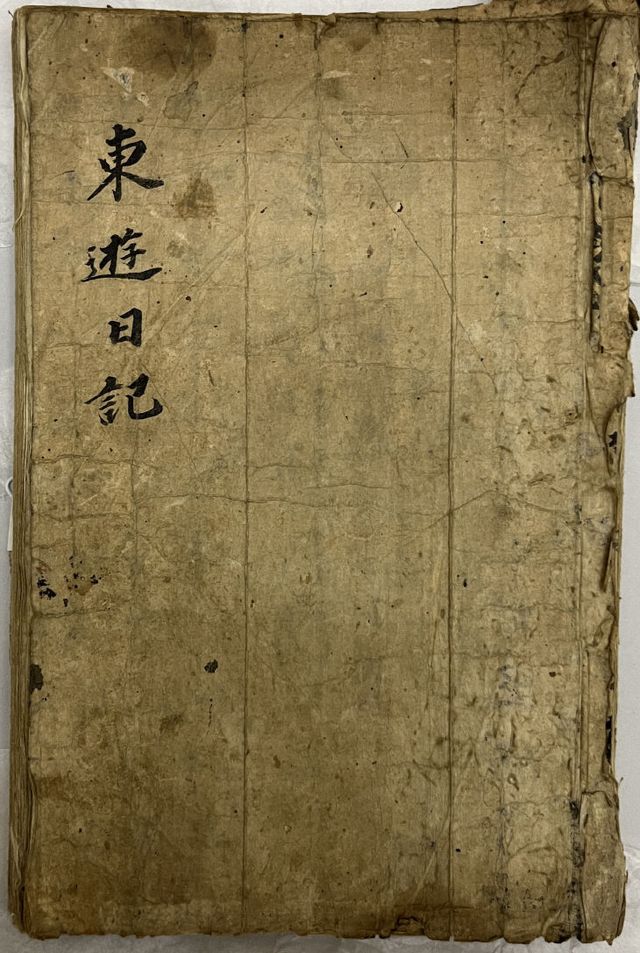 東遊日記